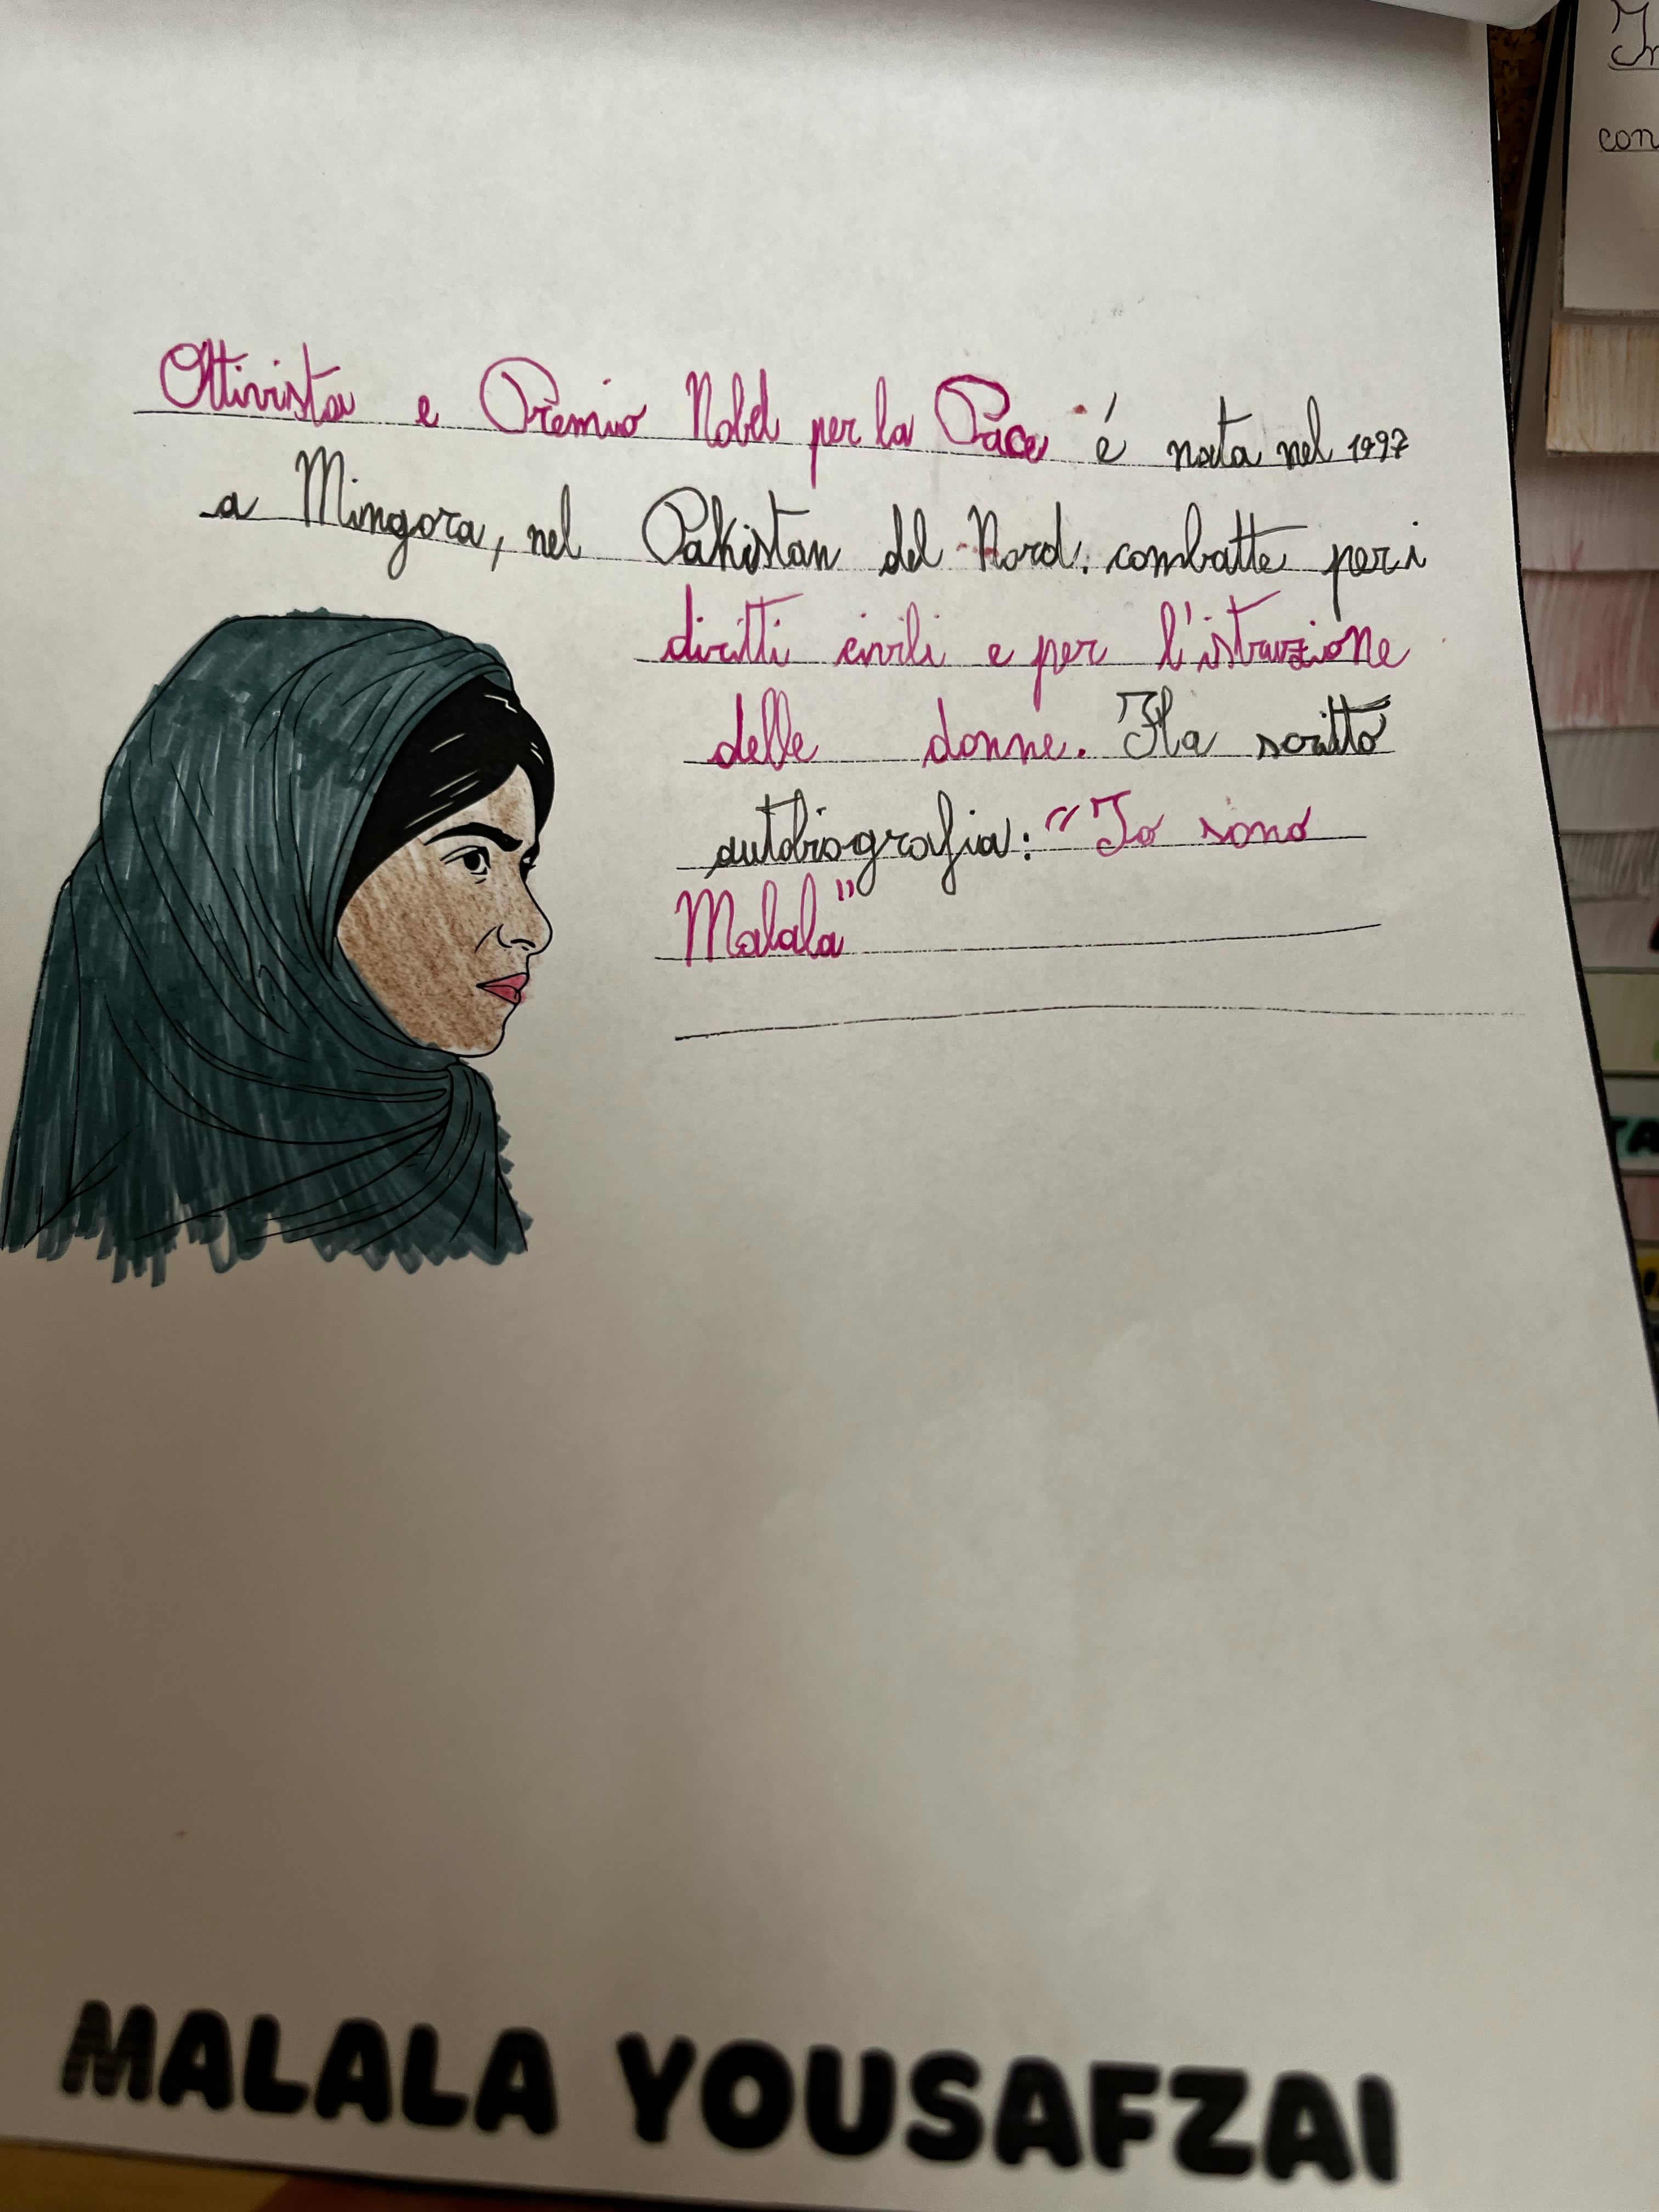 Attivista e Premio Nobel per la Pace é nata nel 1997
a Mingora, nel Pakistan del Nord. combatte per i
diritti civili e per l'istruzione
delle donne. Ha scritto
autobiografia: "Io sono
Malala"
MALALA YOUSAFZAI
con